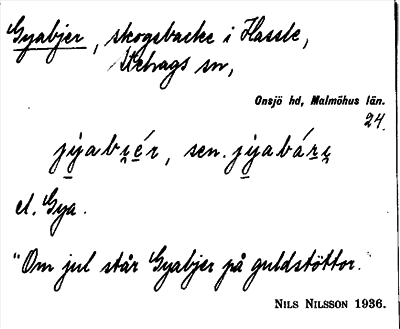 Gyabjer, skogsbacke i Hassle,
Äkhags sn,
Onsjö hd, Malmöhus län.
24.
jyabi̯ér, sen. jyabári̯
el. Gya.
"Om jul står Gyabjer på guldstöttor.
NILS NILSSON 1936.